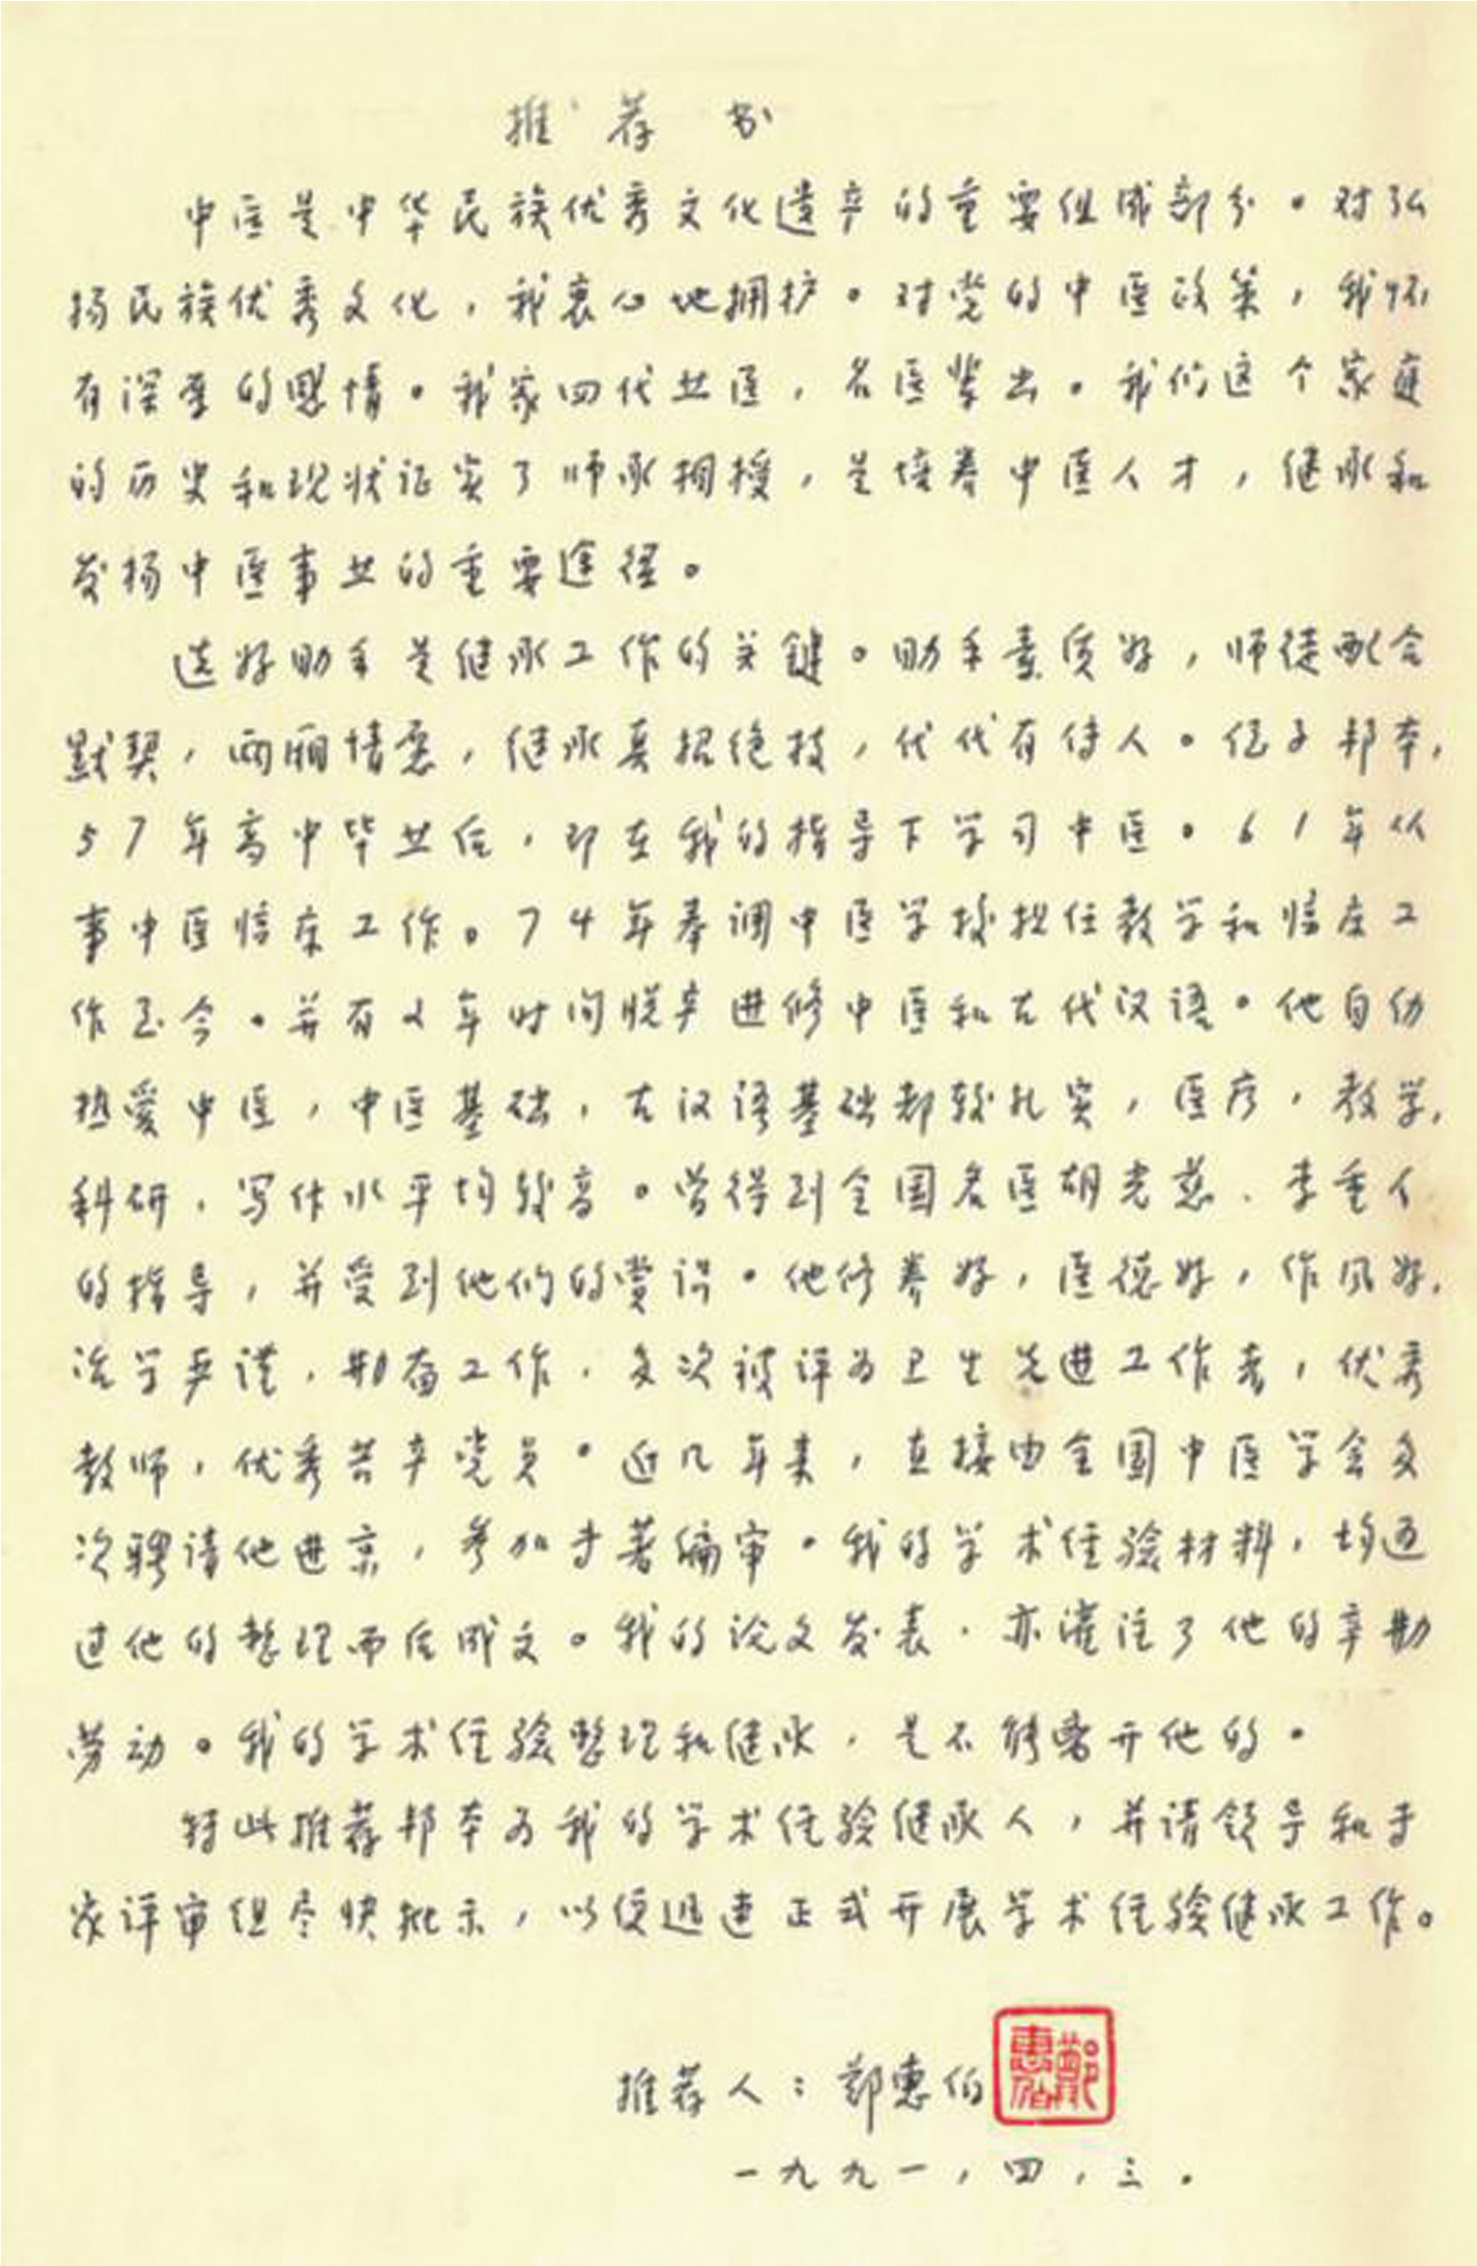 推荐书
中医是中华民族优秀文化遗产的重要组成部分。对弘
扬民族优秀文化，我衷心地拥护。对党的中医政策，我怀
有深厚的感情。我家四代业医，名医辈出。我们这个家庭
的历史和现状证实了师承相授，是培养中医人才，继承和
发扬中医事业的重要途径。
选好助手是继承工作的关键。助手素质好，师徒配合
默契，两厢情愿，继承真招绝技，代代有传人。侄子邦本，
57年高中毕业后，即在我的指导下学习中医。61年从
事中医临床工作。74年奉调中医学校担任教学和临床工
作至今。并有2年时间脱产进修中医和古代汉语。他自幼
热爱中医，中医基础，古汉语基础都较扎实，医疗，教学，
科研，写作水平均较高。曾得到全国名医胡光慈、李重人
的指导，并受到他们的赏识。他修养好，医德好，作风好，
治学严谨，勤奋工作，多次被评为卫生先进工作者，优秀
教师，优秀共产党员。近几年来，直接由全国中医学会多
次聘请他进京，参加专著编审。我的学术经验材料，均通
过他的整理而后成文。我的论文发表，亦灌注了他的辛勤
劳动。我的学术经验整理和继承，是不能离开他的。
特此推荐邦本为我的学术经验继承人，并请领导和专
家评审组尽快批示，以便迅速正式开展学术经验继承工作。
推荐人：郑惠伯
郑惠伯
一九九一，四，三。